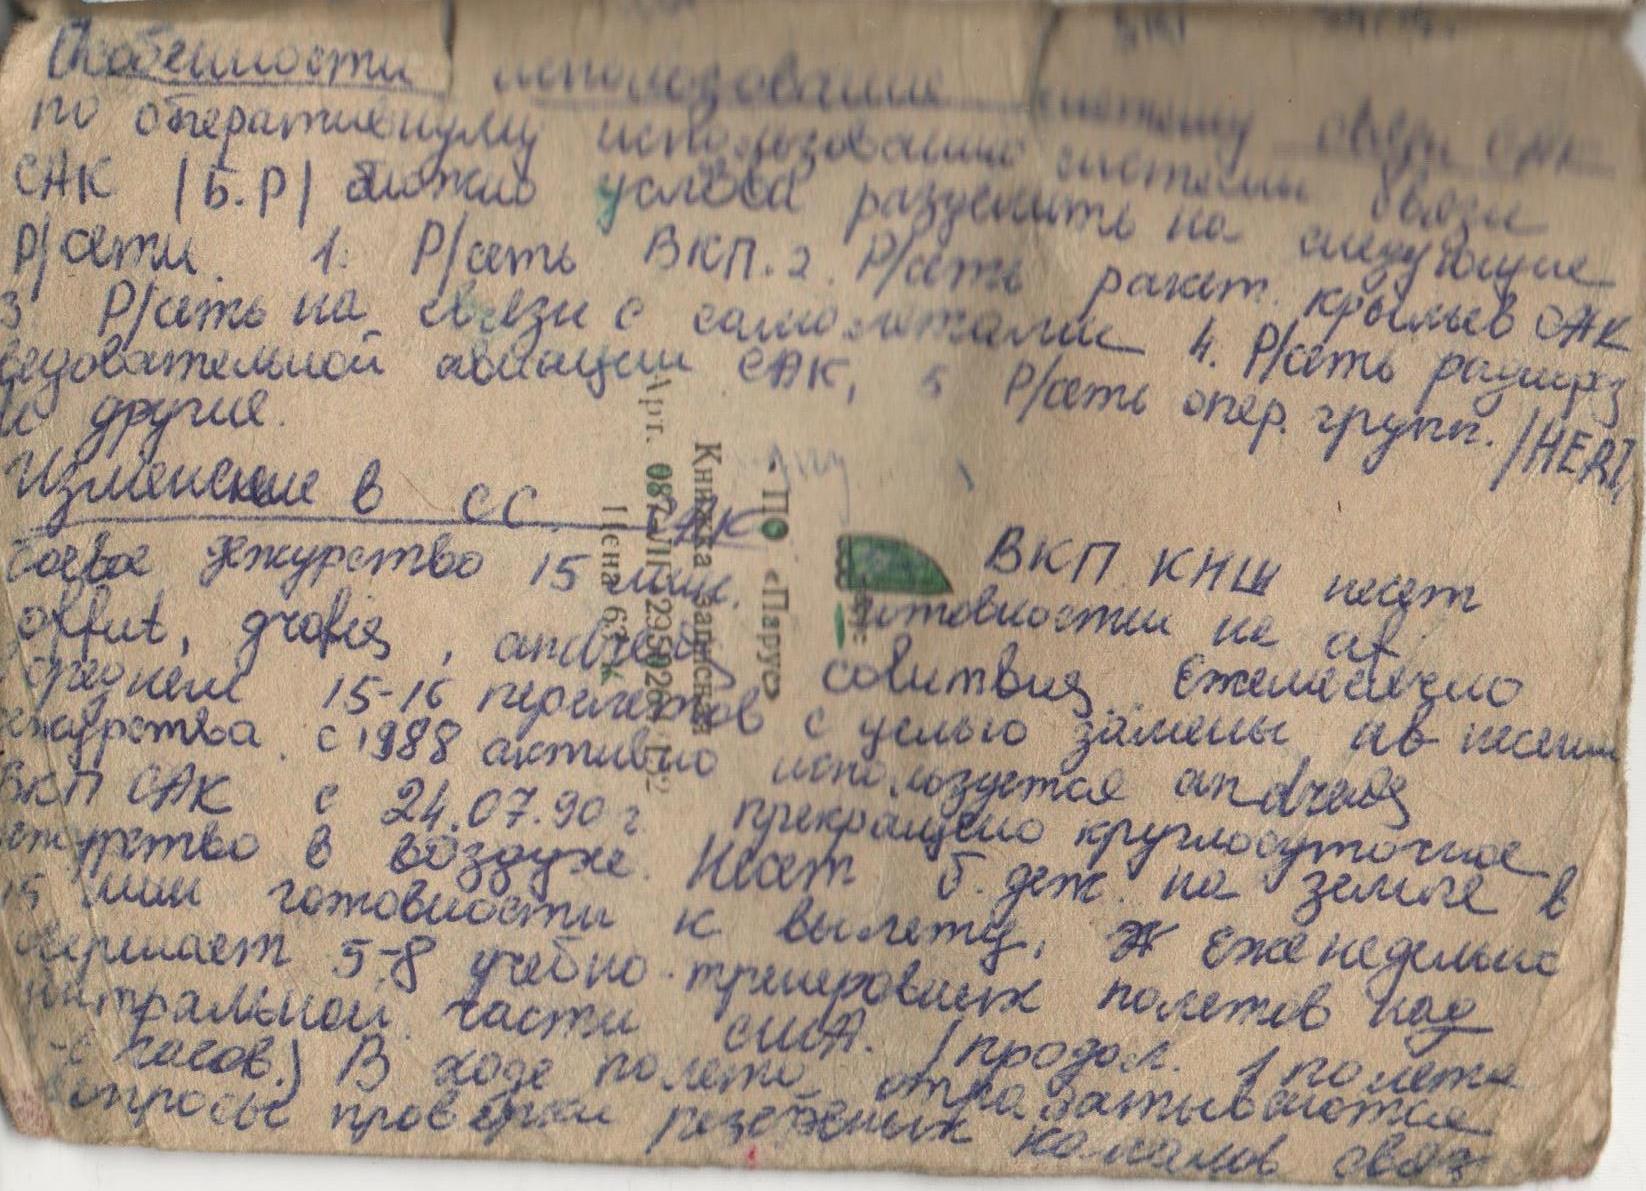 Особенности использование систему связи САК
по оперативному использованию системы связи
САК /Б.Р/ можно условa разделить на следующие
Р/сети. 1. Р/сеть ВКП. 2. Р/сеть ракет. крыльев САК
3 Р/сеть на связи с самолетами 4. Р/сеть
ведовательной авиации САК, 5 Р/сеть опер. групп. /HERT,
и другие.
Изменение в СС САК
ВКП КНШ несет
боевое дежурство 15 мин. готовностии на ав
offut, grafis, andrews, Ежемесечно
среднем 15-16 перелетов с целью замены ав несении
дежурства. с 1988 активно используется andrews
ВКП САК с 24.07.90 г. прекращено круглосуточное
дежурство в воздухе. Несет б. деж. на земле в
15 мин готовности к вылету, Еженедельно
совершает 5-8 учебно-тренеровысх полетов над
центральной части США. /продол. 1 полета
часов.) В ходе полета отрабатываются
вопросы проверки резервных каналов связ
ПО «Парус»
Книжка записная
Арт. 087-ЛГ
Цена 67 к